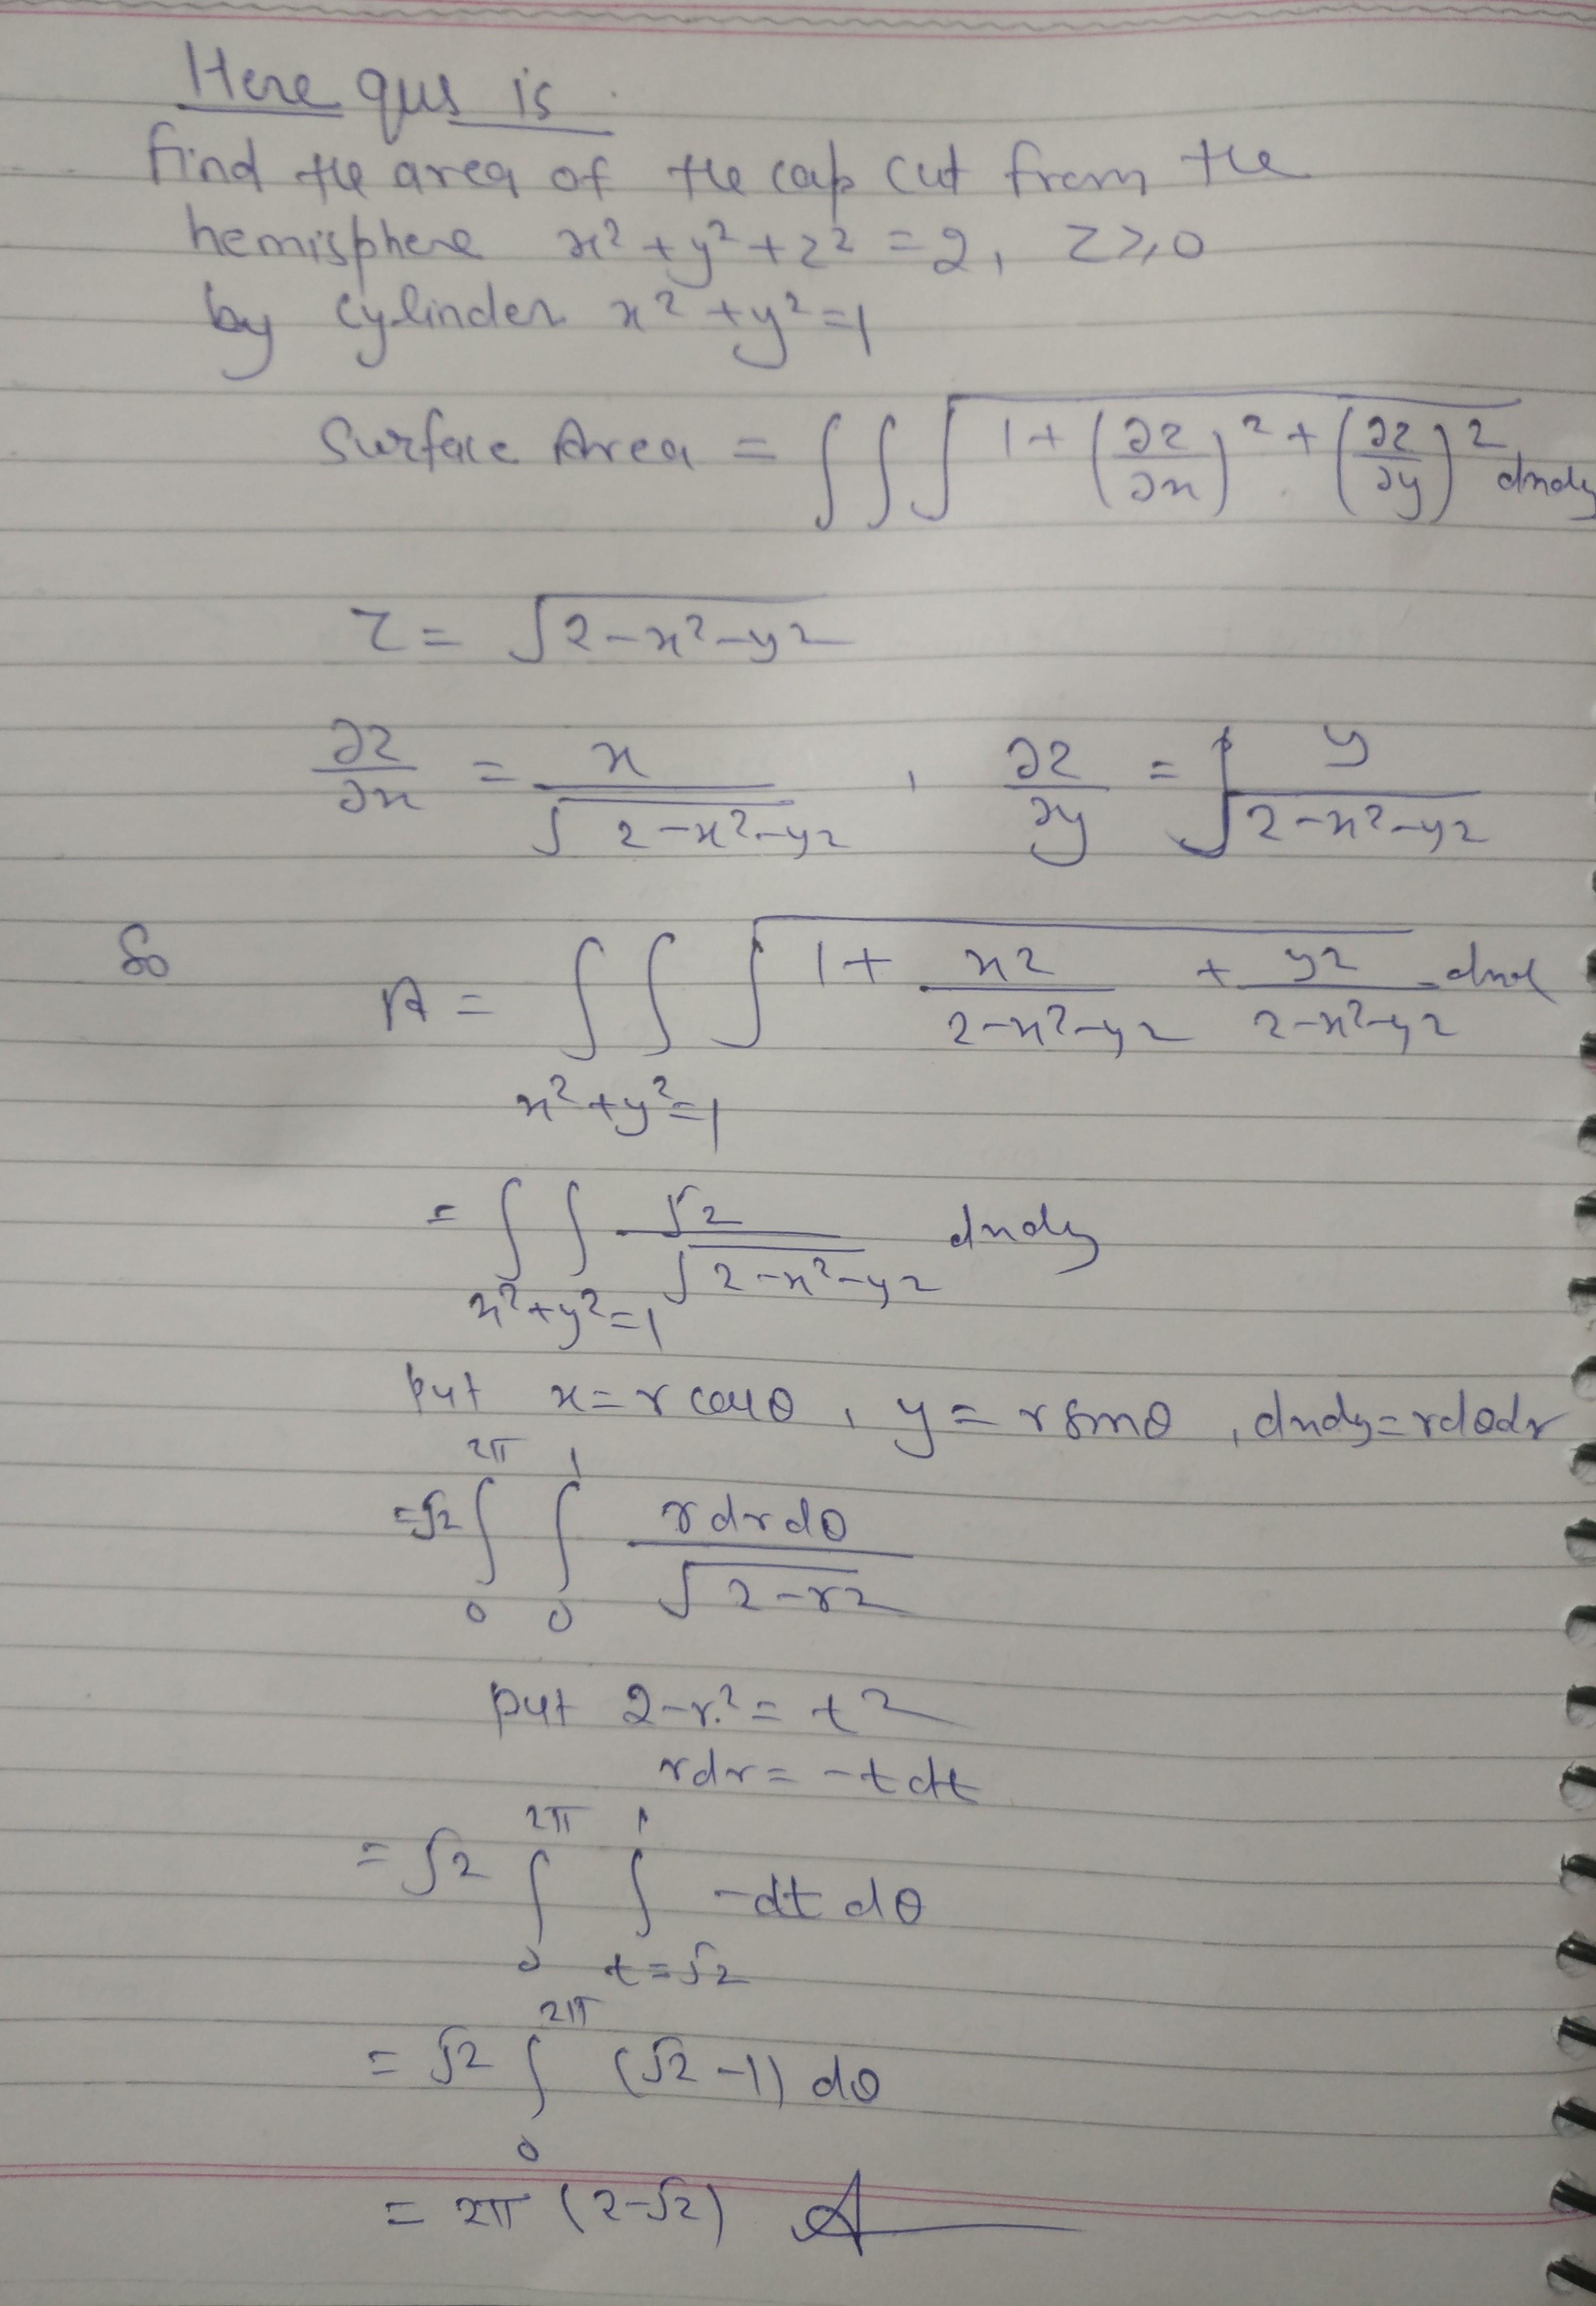 Here qus is
find the area of the cap cut from the
hemisphere x² + y² + z² = 2, z ≥ 0
by cylinder x² + y² = 1
Surface Area = ∫∫√(1 + (∂z/∂x)² + (∂z/∂y)²) dxdy
z = √(2-x²-y²)
∂z/∂x = x/√(2-x²-y²) , ∂z/∂y = y/√(2-x²-y²)
So A = ∫∫√(1 + x²/(2-x²-y²) + y²/(2-x²-y²)) dxd
x² + y² = 1
= ∫∫ √2/√(2-x²-y²) dxdy
x² + y² = 1
put x = r cosθ , y = r sinθ , dxdy = rdθdr
= √2 ∫₀^2π ∫₀^1 rdrdθ/√(2-r²)
put 2-r² = t²
rdr = -tdt
= √2 ∫₀^2π ∫_{t=√2}^1 -dt dθ
= √2 ∫₀^2π (√2-1) dθ
= 2π (2-√2) A